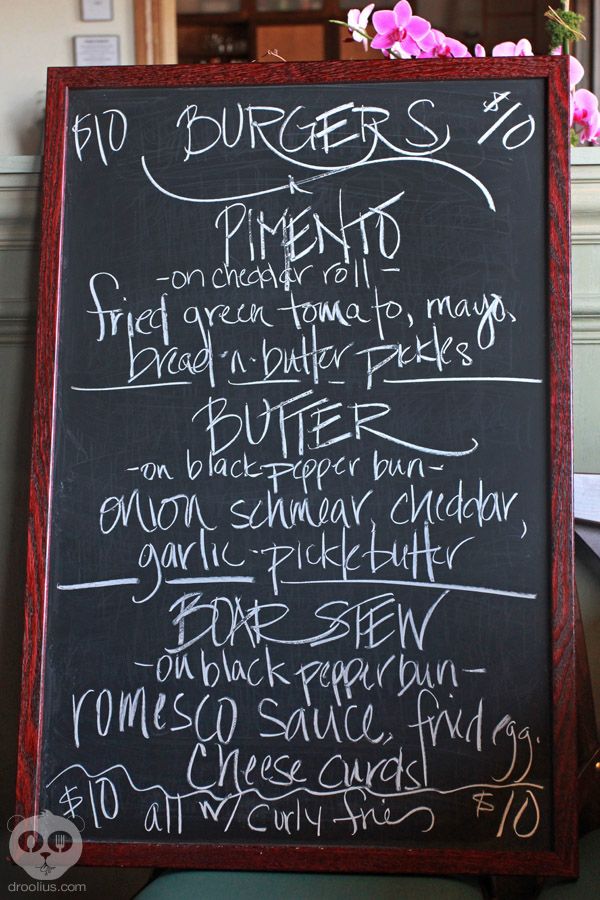 $10 BURGERS $10
PIMENTO
-on cheddar roll-
fried green tomato, mayo,
bread-n-butter pickles
BUTTER
-on black pepper bun-
onion schmear, cheddar,
garlic-pickle butter
BOAR STEW
-on black pepper bun-
romesco sauce, fried egg.
cheese curds
$10 all w/ curly fries $10
droolius.com